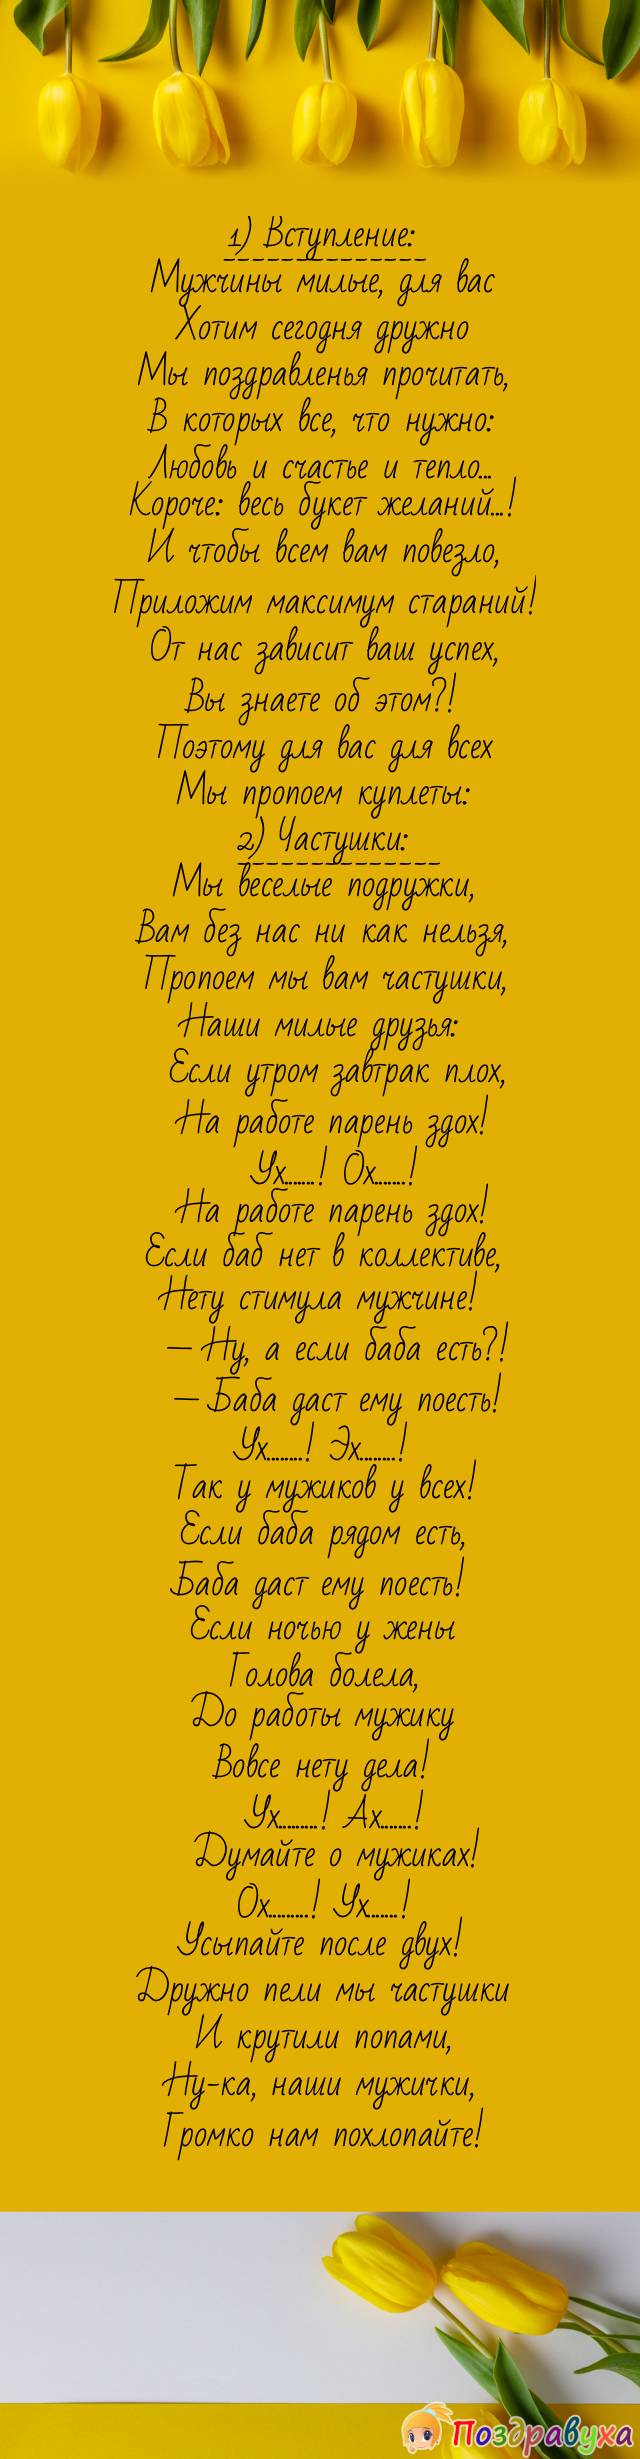 1) Вступление:
--------------
Мужчины милые, для вас
Хотим сегодня дружно
Мы поздравленья прочитать,
В которых все, что нужно:
Любовь и счастье и тепло...
Короче: весь букет желаний...!
И чтобы всем вам повезло,
Приложим максимум стараний!
От нас зависит ваш успех,
Вы знаете об этом?!
Поэтому для вас для всех
Мы пропоем куплеты:
2) Частушки:
--------------
Мы веселые подружки,
Вам без нас ни как нельзя,
Пропоем мы вам частушки,
Наши милые друзья:
Если утром завтрак плох,
На работе парень здох!
Ух.......! Ох.......!
На работе парень здох!
Если баб нет в коллективе,
Нету стимула мужчине!
– Ну, а если баба есть?!
– Баба даст ему поесть!
Ух........! Эх........!
Так у мужиков у всех!
Если баба рядом есть,
Баба даст ему поесть!
Если ночью у жены
Голова болела,
До работы мужику
Вовсе нету дела!
Ух.........! Ах.......!
Думайте о мужиках!
Ох.........! Ух......!
Усыпайте после двух!
Дружно пели мы частушки
И крутили попами,
Ну-ка, наши мужички,
Громко нам похлопайте!
Поздравуха